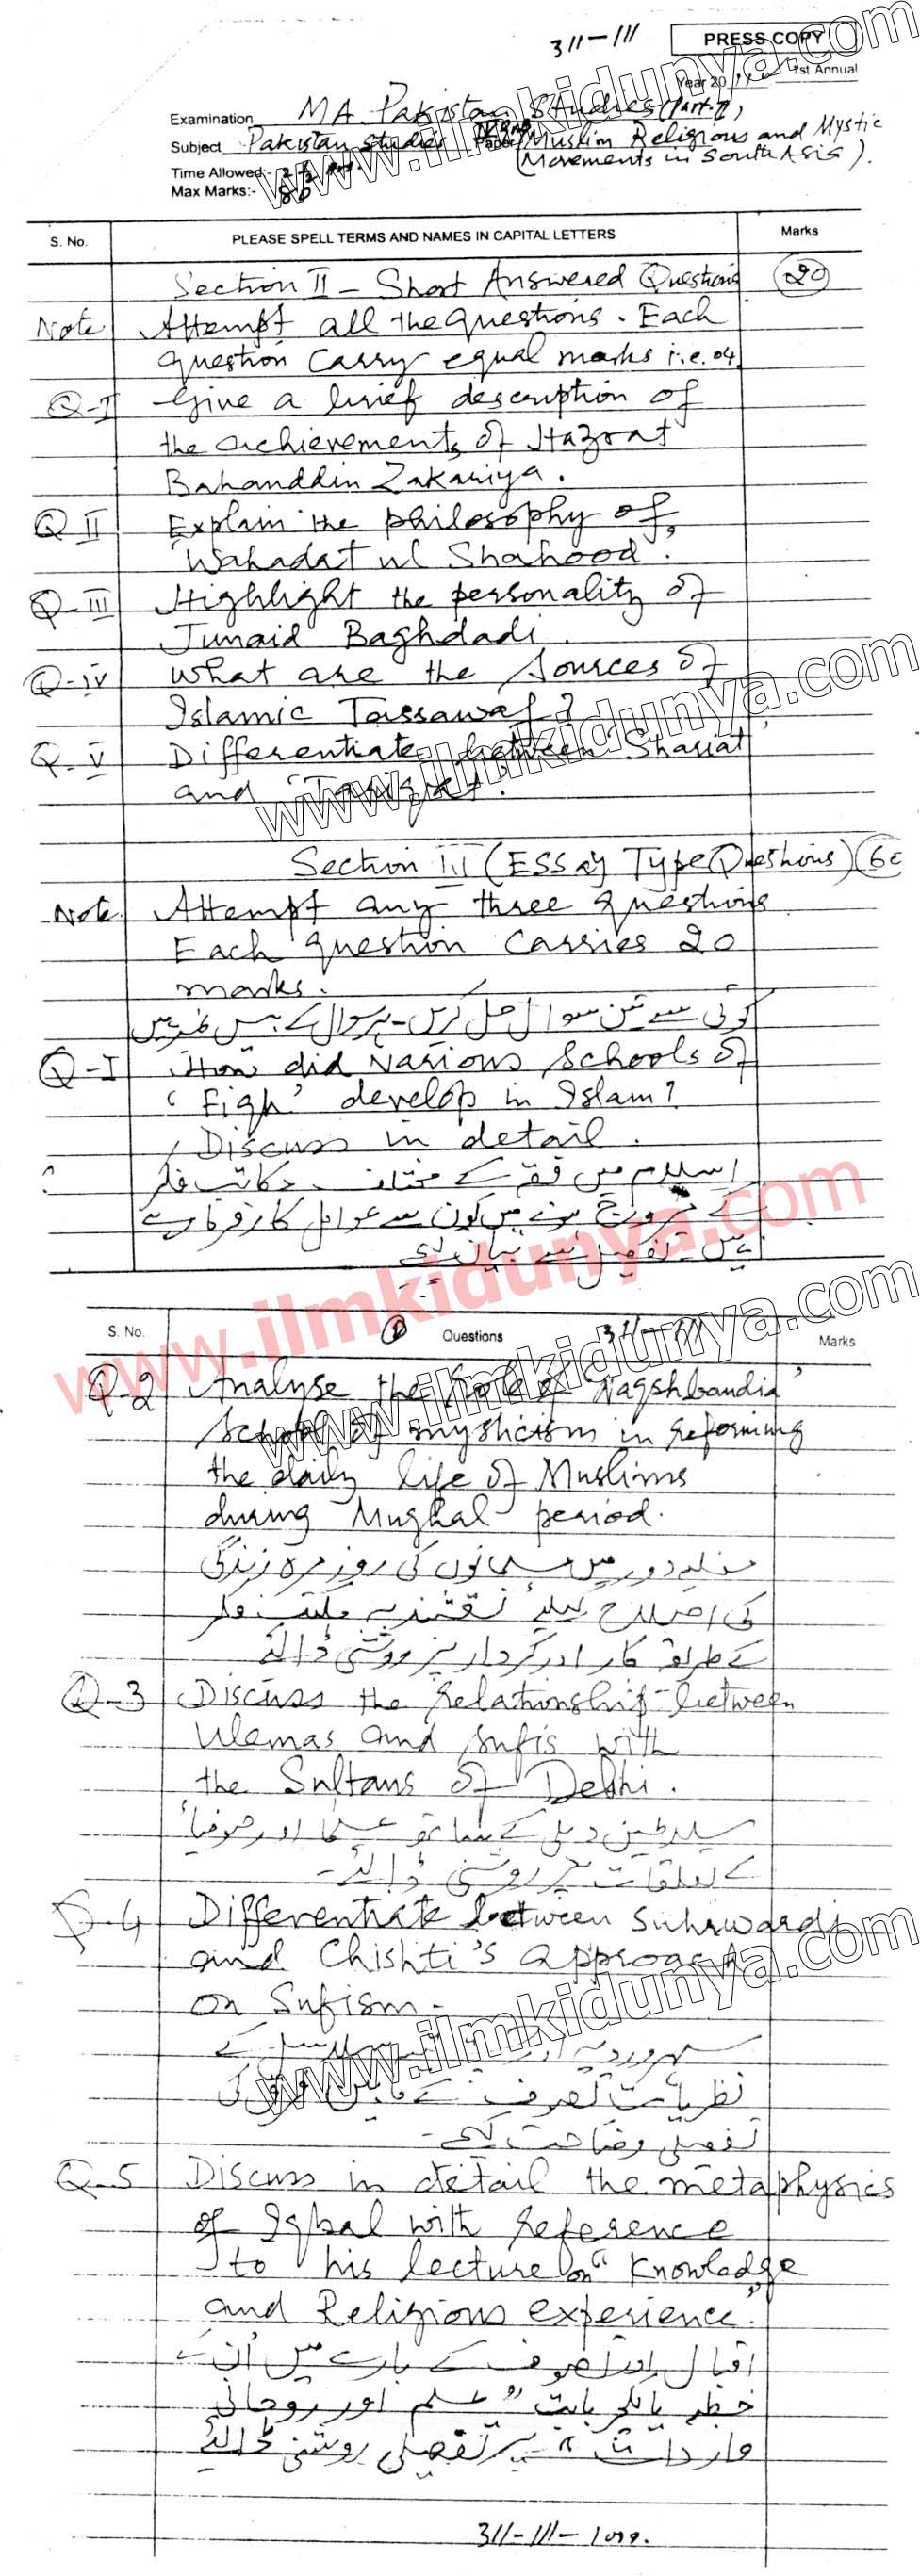 311-111
PRESS COPY
Year 20 1st Annual
Examination MA. Pakistan Studies (Part-II)
Subject Pakistan Studies Paper (Muslim Religious and Mystic
Movements in South Asia).
Time Allowed:- 2 1/2 Hrs.
Max Marks:- 80
S. No. PLEASE SPELL TERMS AND NAMES IN CAPITAL LETTERS Marks
Section II - Short Answered Questions 20
Note Attempt all the questions. Each
question carry equal marks i.e. 04
Q-I Give a brief description of
the achievements of Hazrat
Bahauddin Zakariya.
Q II Explain the philosophy of
'Wahadat ul Shahood'.
Q-III Highlight the personality of
Junaid Baghdadi.
Q-iv What are the Sources of
Islamic Tassawaf?
Q-V Differentiate between 'Shariat'
and 'Tariqat'.
Section III (Essay Type Questions) 60
Note Attempt any three questions
Each question carries 20
marks.
کوئی سے تین سوال حل کریں۔ ہر سوال کے بیس نمبر ہیں
Q-I How did various schools of
'Fiqh' develop in Islam?
Discuss in detail.
اسلام میں فقہ کے مختلف مکاتب فکر
کے مروج ہونے میں کون سے عوامل کارفرما رہے
ہیں۔ تفصیل سے بیان کریں
www.ilmkidunya.com
S. No. Questions 311-111 Marks
Q-2 Analyse the Role of 'Naqshbandia'
School of mysticism in reforming
the daily life of Muslims
during Mughal period.
مغلیہ دور میں مسلمانوں کی روزمرہ زندگی
کی اصلاح کیلئے نقشبندیہ مکتب فکر
کے طریقہ کار اور کردار پر روشنی ڈالئے
Q-3 Discuss the relationship between
Ulemas and Sufis with
the Sultans of Delhi.
سلاطین دہلی کے ساتھ علما اور صوفیا
کے تعلقات پر روشنی ڈالئے۔
Q-4 Differentiate between Suhrwardi
and Chishti's approach
on Sufism.
سہروردیہ اور سلاسل کے
نظریات تصوف کے مابین فرق کی
تفصیلی وضاحت کیجئے۔
Q-5 Discuss in detail the metaphysics
of Iqbal with reference
to his lecture on "Knowledge
and Religious experience".
اقبال اور تصوف کے بارے میں ان کے
خطبہ یا لیکچر بابت "علم اور روحانی
واردات" پر تفصیلی روشنی ڈالئے
311-111-